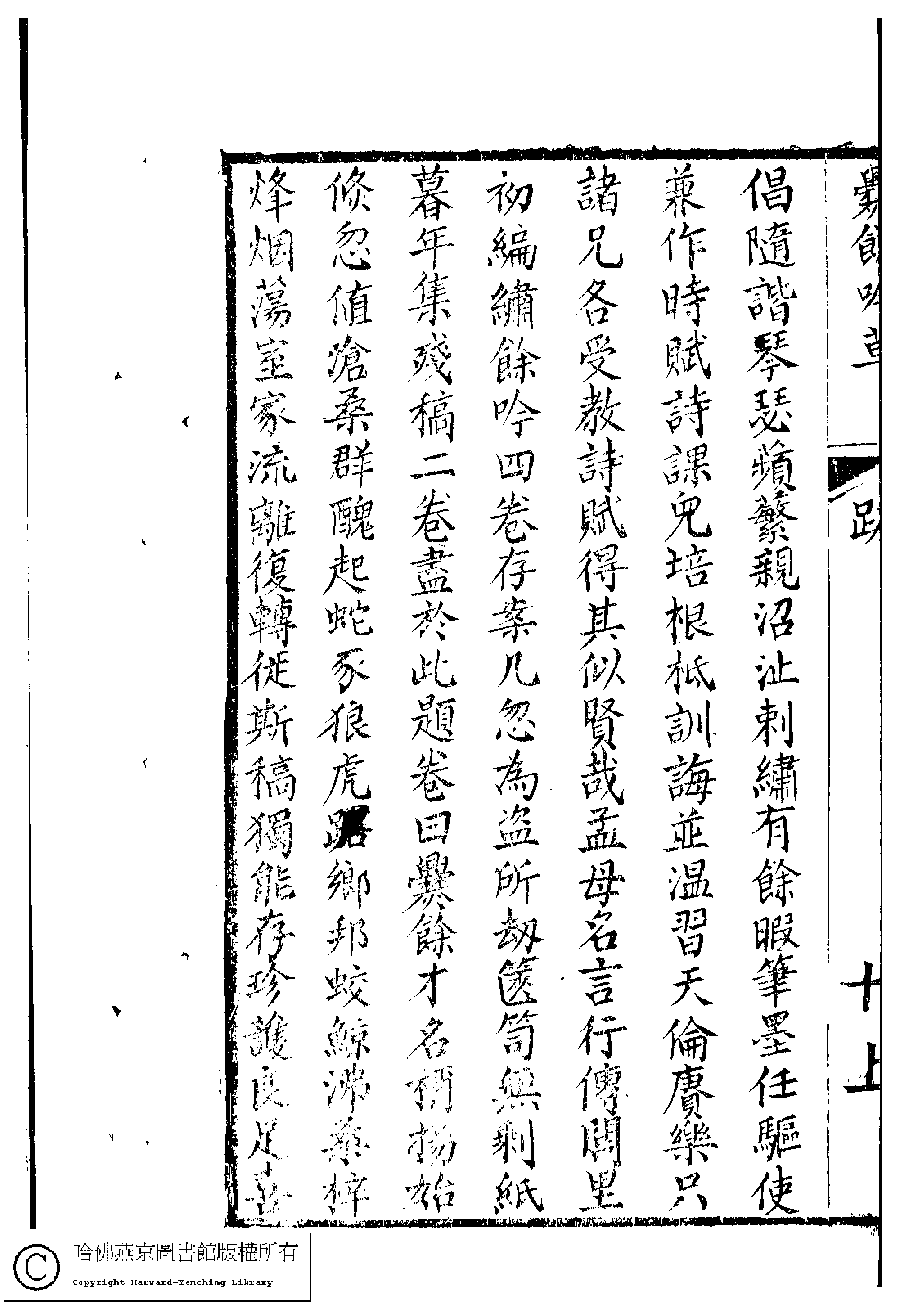 爨餘吟草
跋
十上
倡隨諧琴瑟蘋蘩親沼沚刺繡有餘暇筆墨任驅使
兼作時賦詩課兒培根柢訓誨並溫習天倫賡樂只
諸兄各受教詩賦得其似賢哉孟母名言行傳閭里
初編繡餘吟四卷存案几忽為盜所劫篋笥無剩紙
暮年集殘稿二卷盡於此題卷曰爨餘才名稍揚始
倏忽值滄桑群醜起蛇豕狼虎踞鄉邦蛟鯨沸桑梓
烽烟蕩室家流離復轉徙斯稿獨能存珍護良足喜
哈佛燕京圖書館版權所有
Copyright Harvard-Yenching Library